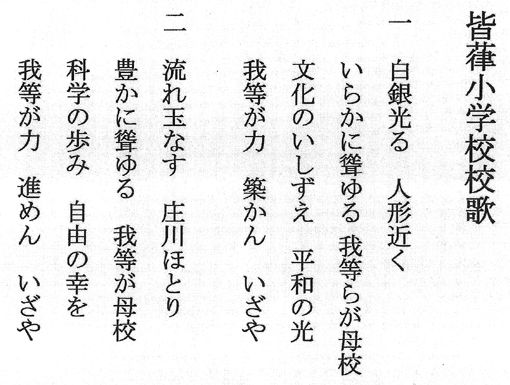 皆葎小学校校歌
一 白銀光る 人形近く
いらかに聳ゆる 我等らが母校
文化のいしずえ 平和の光
我等が力 築かん いざや
二 流れ玉なす 庄川ほとり
豊かに聳ゆる 我等が母校
科学の歩み 自由の幸を
我等が力 進めん いざや